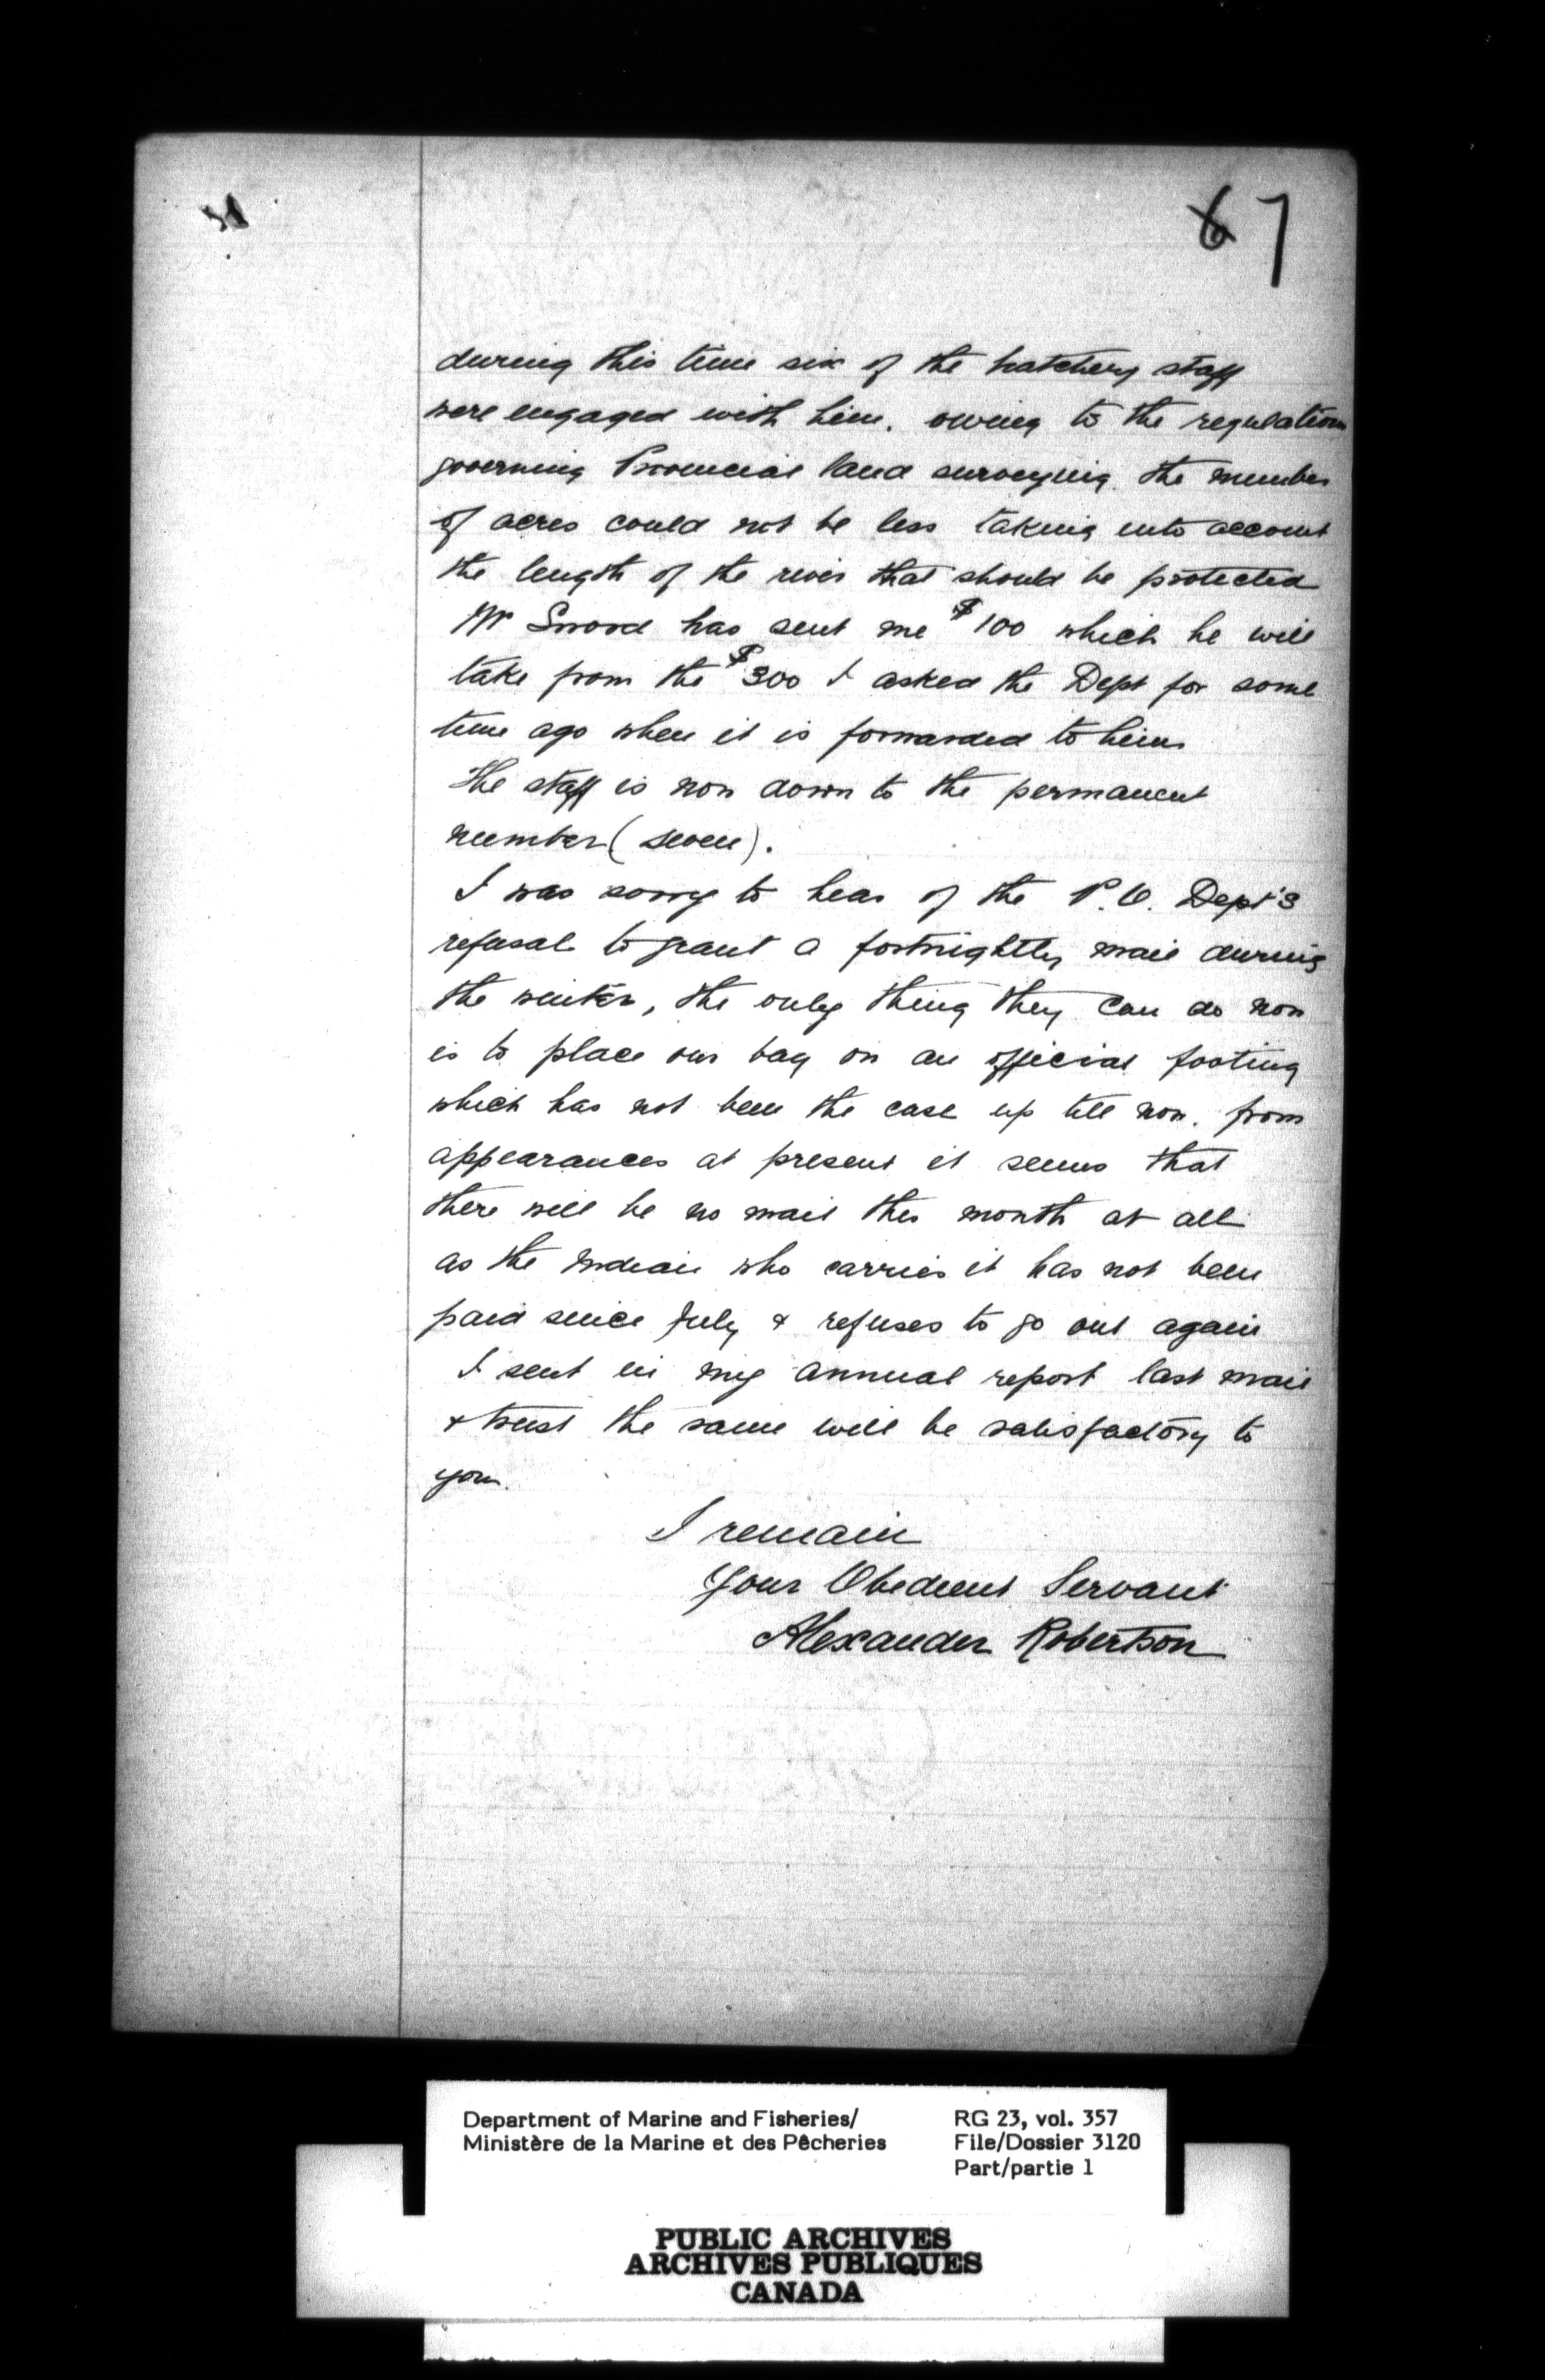 67
during this time six of the hatchery staff
were engaged with him. owing to the regulations
governing Provincial land surveying the number
of acres could not be less taking into account
the length of the river that should be protected
Mr Sword has sent me $100 which he will
take from the $300 I asked the Dept for some
time ago when it is forwarded to him
The staff is now down to the permanent
number (seven).
I was sorry to hear of the P.O. Dept's
refusal to grant a fortnightly mail during
the winter, the only thing they can do now
is to place our bag on an official footing
which has not been the case up till now. from
appearances at present it seems that
there will be no mail this month at all
as the Indian who carries it has not been
paid since July & refuses to go out again
I sent in my annual report last mail
& trust the same will be satisfactory to
you.
I remain
Your Obedient Servant
Alexander Robertson
Department of Marine and Fisheries/
Ministère de la Marine et des Pêcheries
RG 23, vol. 357
File/Dossier 3120
Part/partie 1
PUBLIC ARCHIVES
ARCHIVES PUBLIQUES
CANADA